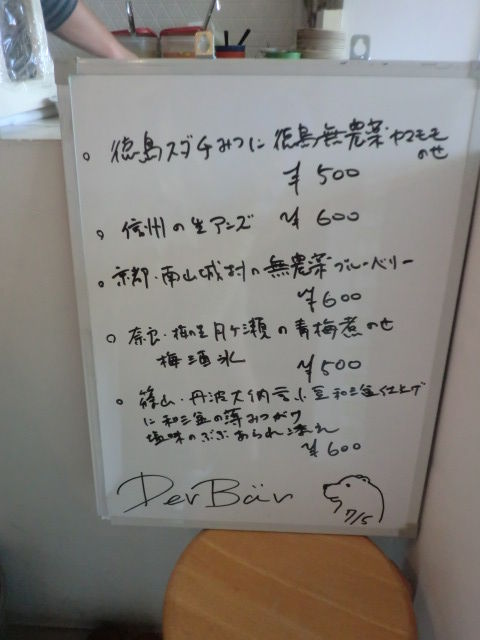 。徳島スダチみつに徳島無農薬ヤマモモ
のせ
¥500
。信州の生アンズ ¥600
。京都・南山城村の無農薬ブルーベリー
¥600
。奈良・梅の里月ケ瀬の青梅煮のせ
梅酒氷 ¥500
。篠山・丹波大納言小豆和三盆仕上げ
に和三盆の薄みつがけ
塩味のぶぶあられ添え
¥600
Der Bär
7/5